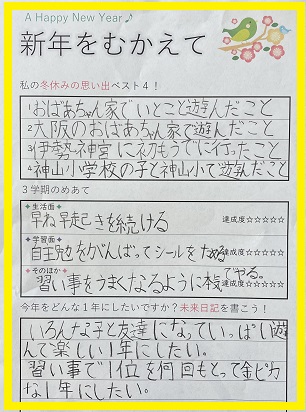 A Happy New Year♪
新年をむかえて
私の冬休みの思い出ベスト4!
1おばあちゃん家でいとこと遊んだこと
2大阪のおばあちゃん家で遊んだこと
3伊勢神宮に初もうでに行ったこと
4神山小学校の子と神山小で遊んだこと
3学期のめあて
✦生活面✦
早ね早起きを続ける 達成度☆☆☆☆☆
✦学習面✦
自主勉をがんばってシールをためる 達成度☆☆☆☆☆
✦そのほか✦
習い事をうまくなるように本気でやる。 達成度☆☆☆☆☆
今年をどんな1年にしたいですか?未来日記を書こう!
いろんな子と友達になっていっぱい遊
んで楽しい1年にしたい。
習い事で1位を何回もとって金ピカ
な1年にしたい。